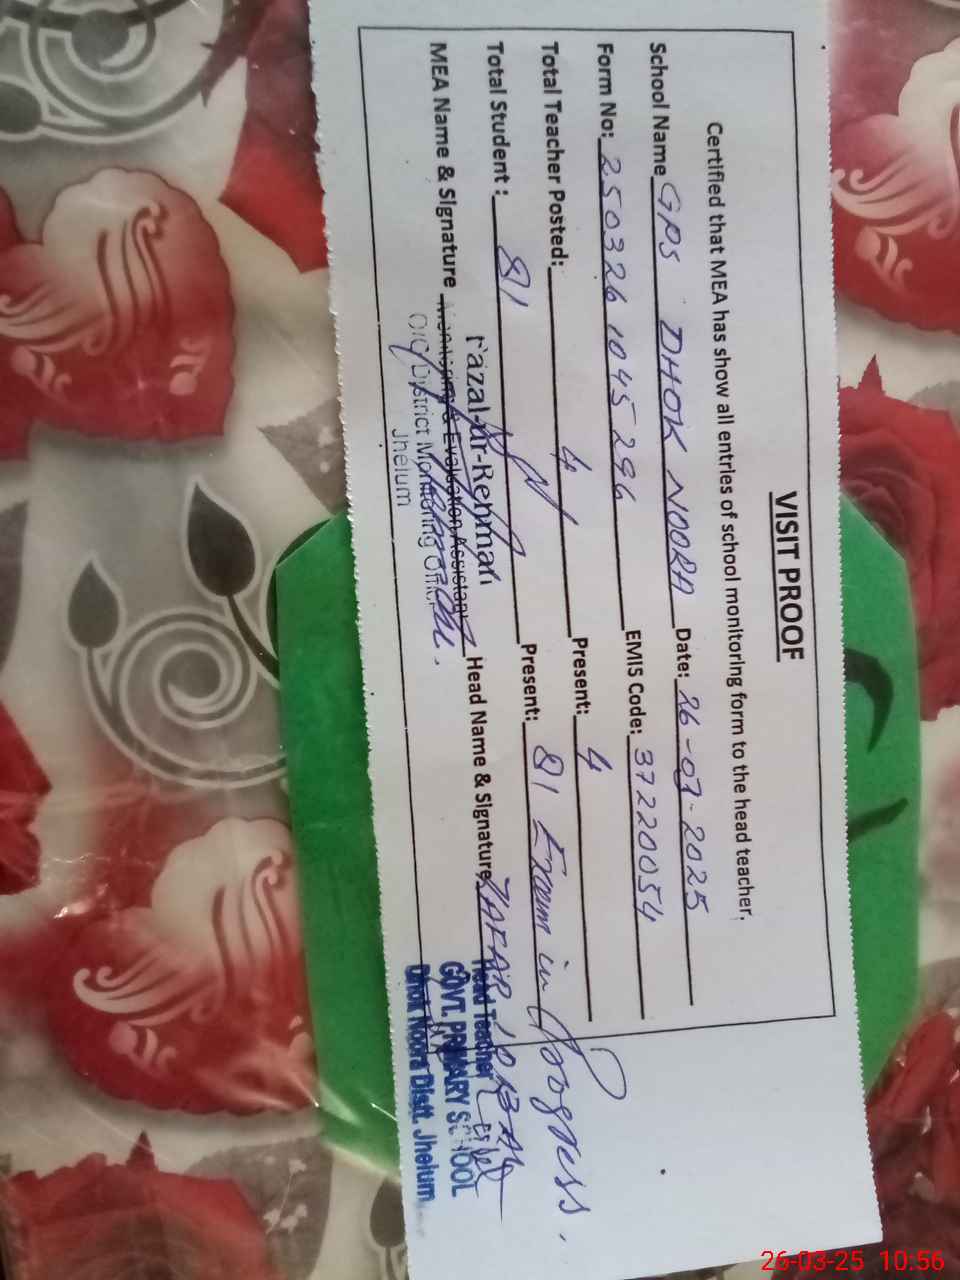 VISIT PROOF
Certified that MEA has show all entries of school monitoring form to the head teacher.
School Name GPS DHOK NOORA Date: 26-03-2025
Form No: 250326 1045 296 EMIS Code: 37220054
Total Teacher Posted: 4 Present: 4
Total Student : 81 Present: 81 Exam in Progress.
MEA Name & Signature Head Name & Signature ZAFAR IQBAL
Fazal-ur-Rehman
Monitoring & Evaluation Assistant
O/O District Monitoring Officer
Jhelum
Head Teacher
GOVT. PRIMARY SCHOOL
Dhok Noora Distt. Jhelum
26-03-25 10:56